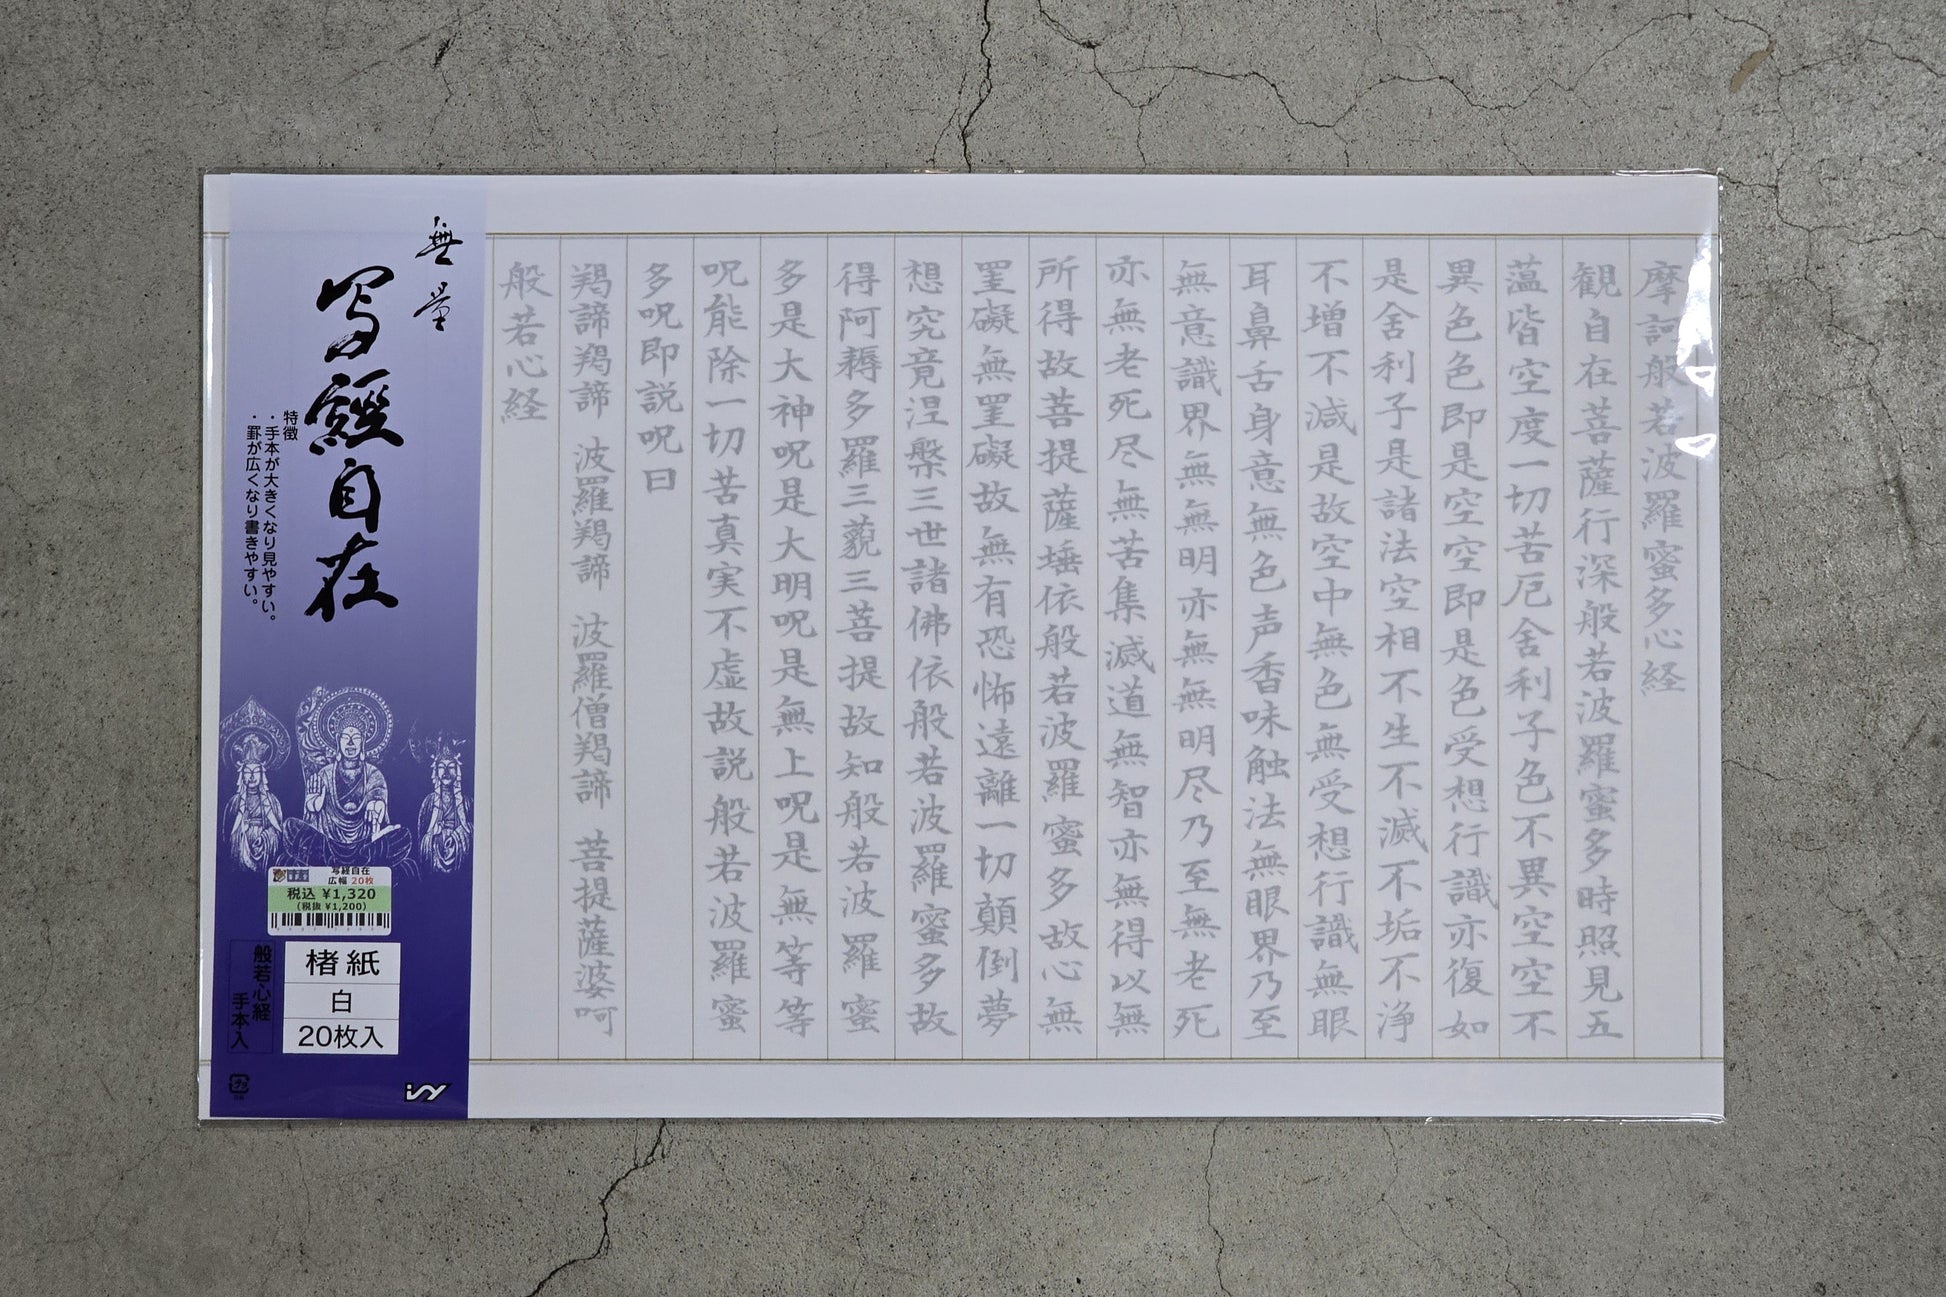 摩訶般若波羅蜜多心経
観自在菩薩行深般若波羅蜜多時照見五
薀皆空度一切苦厄舍利子色不異空空不
異色色即是空空即是色受想行識亦復如
是舍利子是諸法空相不生不滅不垢不浄
不増不減是故空中無色無受想行識無眼
耳鼻舌身意無色声香味触法無眼界乃至
無意識界無無明亦無無明尽乃至無老死
亦無老死尽無苦集滅道無智亦無得以無
所得故菩提薩埵依般若波羅蜜多故心無
罣礙無罣礙故無有恐怖遠離一切顛倒夢
想究竟涅槃三世諸佛依般若波羅蜜多故
得阿耨多羅三藐三菩提故知般若波羅蜜
多是大神呪是大明呪是無上呪是無等等
呪能除一切苦真実不虚故説般若波羅蜜
多呪即説呪曰
羯諦羯諦 波羅羯諦 波羅僧羯諦 菩提薩婆呵
般若心経
無量
写経自在
特徴
・手本が大きくなり見やすい。
・罫が広くなり書きやすい。
写経自在
広幅 20枚
税込 ¥1,320
(税抜 ¥1,200)
般若心経
手本入
楮紙
白
20枚入